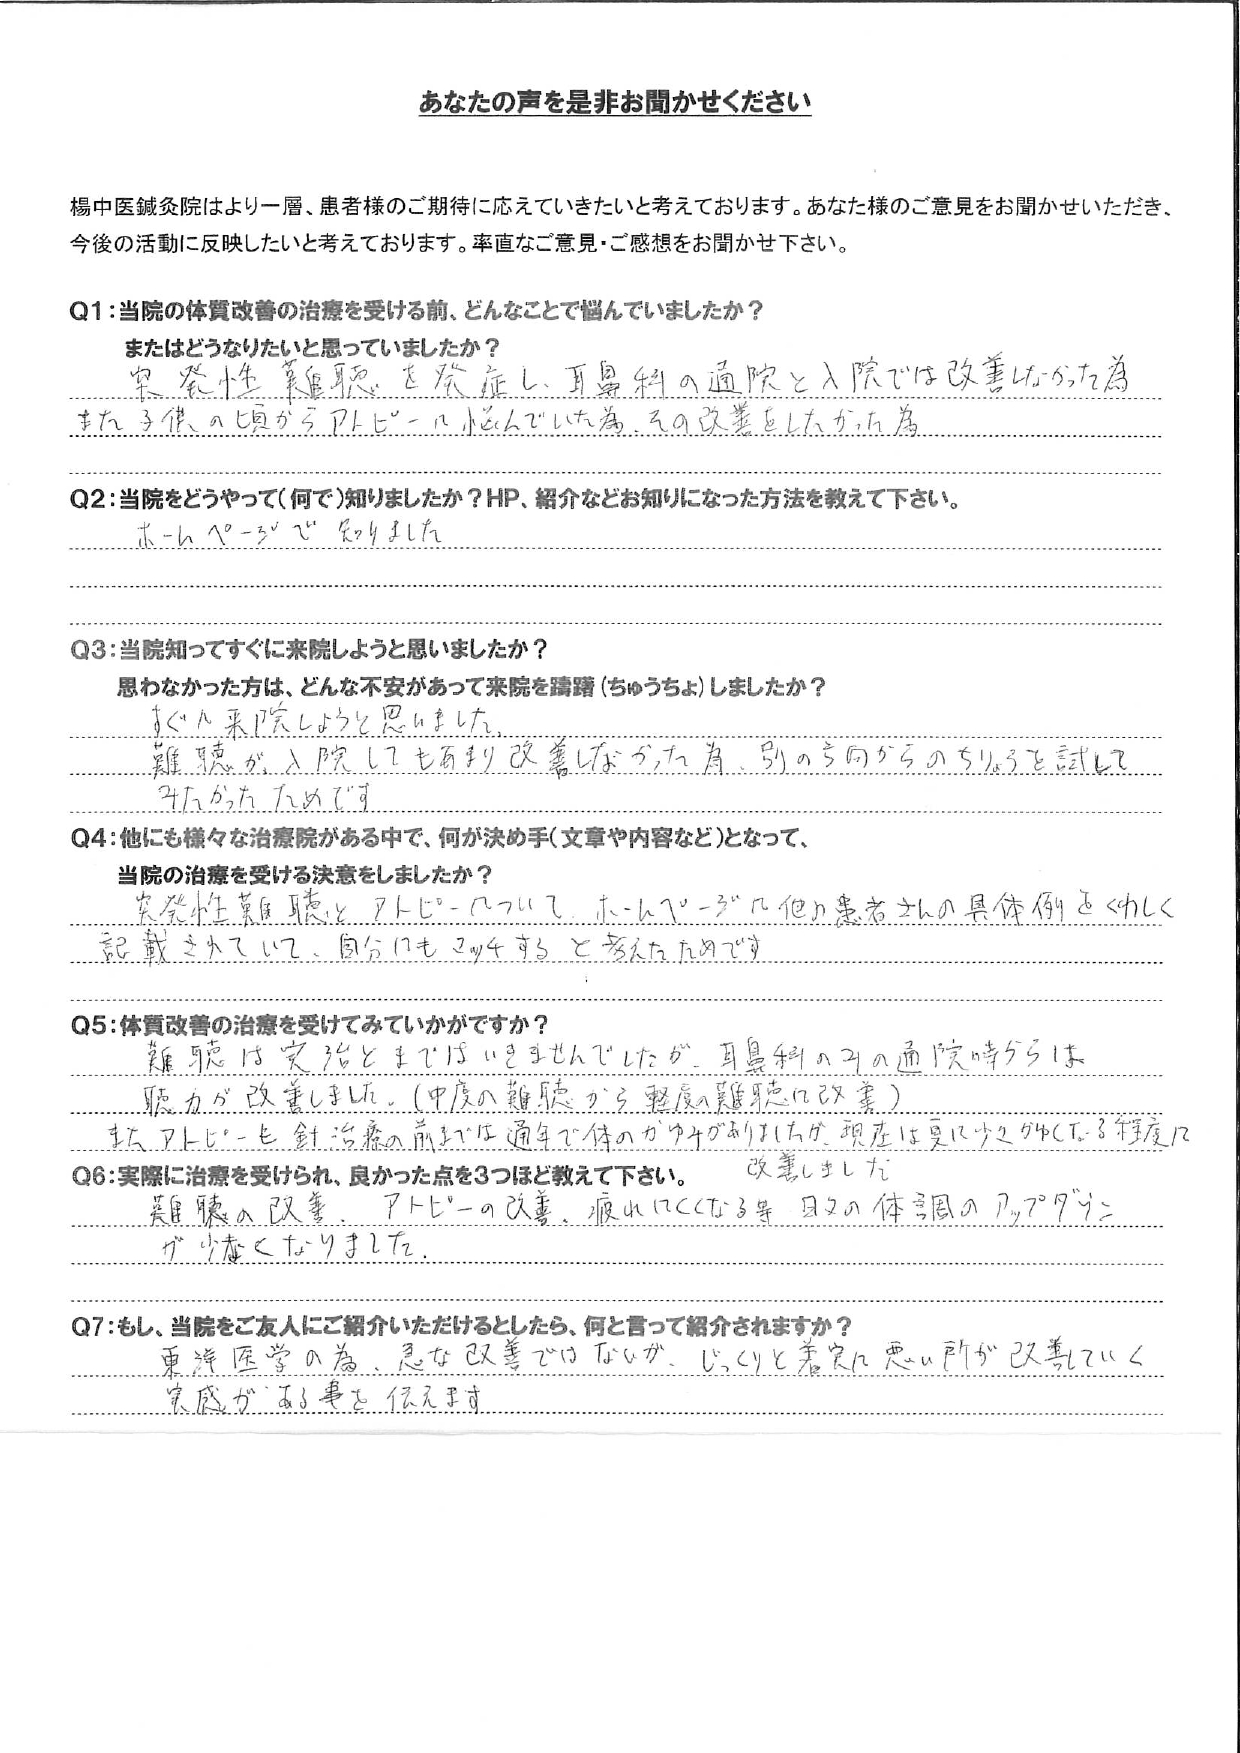 あなたの声を是非お聞かせください
楊中医鍼灸院はより一層、患者様のご期待に応えていきたいと考えております。あなた様のご意見をお聞かせいただき、
今後の活動に反映したいと考えております。率直なご意見・ご感想をお聞かせ下さい。
Q1:当院の体質改善の治療を受ける前、どんなことで悩んでいましたか？
またはどうなりたいと思っていましたか？
突発性難聴を発症し、耳鼻科の通院と入院では改善しなかった為
また子供の頃からアトピーに悩んでいた為、その改善をしたかった為
Q2:当院をどうやって(何で)知りましたか？HP、紹介などお知りになった方法を教えて下さい。
ホームページで知りました
Q3:当院知ってすぐに来院しようと思いましたか？
思わなかった方は、どんな不安があって来院を躊躇(ちゅうちょ)しましたか？
すぐに来院しようと思いました。
難聴が、入院してもあまり改善しなかった為、別の方向からのちりょうを試して
みたかったためです
Q4:他にも様々な治療院がある中で、何が決め手(文章や内容など)となって、
当院の治療を受ける決意をしましたか？
突発性難聴とアトピーについて、ホームページに他の患者さんの具体例をくわしく
記載されていて、自分にもマッチすると考えたためです
Q5:体質改善の治療を受けてみていかがですか？
難聴は完治とまではいきませんでしたが、耳鼻科のみの通院時からは
聴力が改善しました。(中度の難聴から軽度の難聴に改善)
またアトピーも針治療の前までは通年で体のかゆみがありましたが、現在は夏に少々かゆくなる程度に
改善しました
Q6:実際に治療を受けられ、良かった点を3つほど教えて下さい。
難聴の改善、アトピーの改善、疲れにくくなる等 日々の体調のアップダウン
が少なくなりました。
Q7:もし、当院をご友人にご紹介いただけるとしたら、何と言って紹介されますか？
東洋医学の為、急な改善ではないが、じっくりと着実に悪い所が改善していく
実感がある事を伝えます